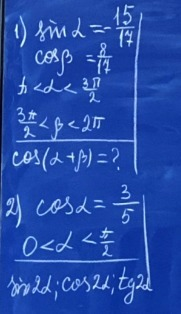 1) sin α = -15/17
cosβ = 8/17
π < α < 3π/2
3π/2 < β < 2π
cos(α+β) = ?
2) cosα = 3/5
0 < α < π/2
sin2α; cos2α; tg2α